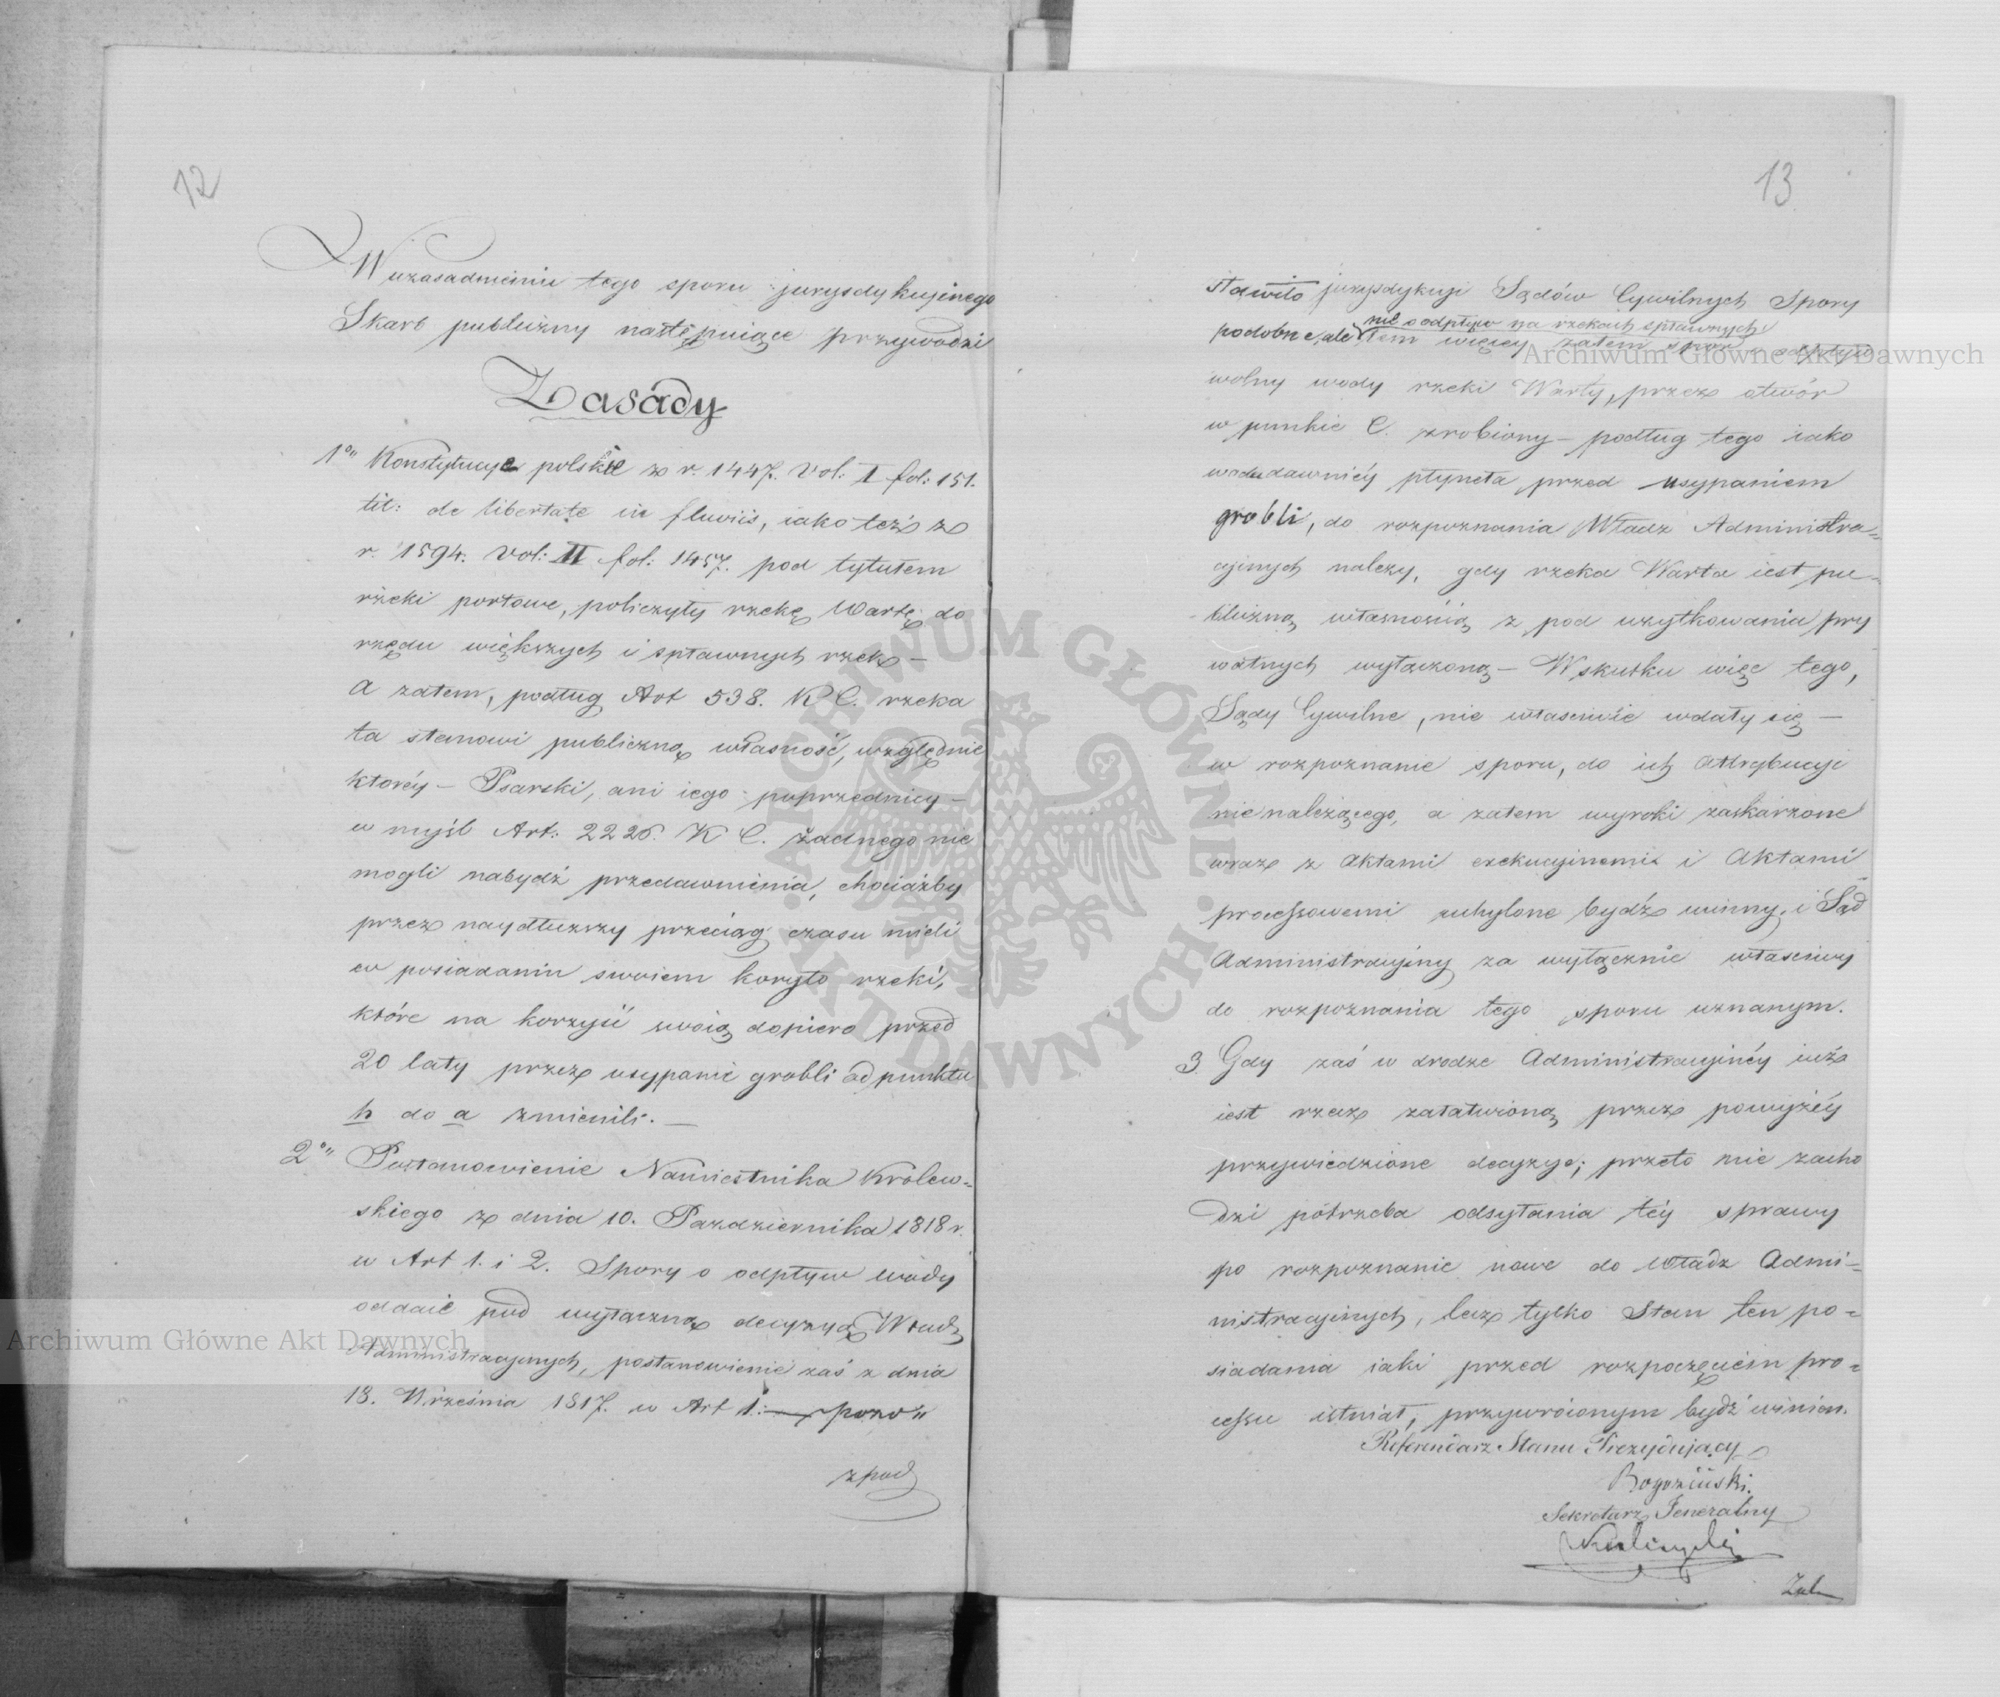 12
W uzasadnieniu tego sporu jurysdykcyinego
Skarb publiczny następuiące przywodzi
Zasady
1o" Konstytucye polskie z r. 1447. Vol: I fol: 151.
tit: de libertate in fluviis, iako też z
r. 1594. Vol: II fol: 1457. pod tytułem
rzeki portowe, policzyły rzekę Wartę do
rzędu większych i spławnych rzek –
a zatem, podług Art 538. K C. rzeka
ta stanowi publiczną własność, względnie
któréy – Psarski, ani iego poprzednicy –
w myśl Art: 2226. K C. żadnego nie
mogli nabydź przedawnienia, chociażby
przez naydłuższy przeciąg czasu mieli
w posiadaniu swoiem koryto rzeki,
które na korzyść swoią dopiero przed
20 laty przez usypanie grobli od punktu
h do a zmienili. –
2o" Postanowienie Namiestnika Królew=
skiego z dnia 10. Pazdziernika 1818 r.
w Art 1. i 2. Spory o odpływ wody
oddaie pod wyłączną decyzyą Władz
Administracyinych, postanowienie zaś z dnia
18. Września 1817. w Art 1. – pozo"
zpod
13
stawiło jurysdykcyi Sądów Cywilnych Spory
nie o odpływ na rzekach spławnych
podobne, ale tem więcey zatem spór o odpływ
wolny wody rzeki Warty, przez otwór
w punkcie C. zrobiony – podług tego iako
woda dawniéy płynęła przed usypaniem
grobli, do rozpoznania Władz Administra=
cyinych należy, gdy rzeka Warta iest pu-
bliczną własnością z pod użytkowania pry
watnych wyłączoną – Wskutku więc tego,
Sądy Cywilne, nie właściwie wdały się –
w rozpoznanie sporu, do ich attrybucyi
nienależącego, a zatem wyroki zaskarżone
wraz z Aktami exekucyinemi i Aktami
processowemi uchylone bydź winny, i Sąd
Administracyiny za wyłącznie właściwy
do rozpoznania tego sporu uznanym.
3. Gdy zaś w drodze Administracyinéy iuż
iest rzecz załatwioną przez powyżéy
przywiedzione decyzye; przeto nie zacho
dzi potrzeba odsyłania téy sprawy
po rozpoznanie nowe do Władz Admi-
nistracyinych, lecz tylko Stan ten po=
siadania iaki przed rozpoczęciem pro=
cessu istniał, przywróconym bydź winien.
Referendarz Stanu Prezydujący
Sekretarz Jeneralny
Archiwum Główne Akt Dawnych
Archiwum Główne Akt Dawnych
ARCHIWUM GŁÓWNE AKT DAWNYCH